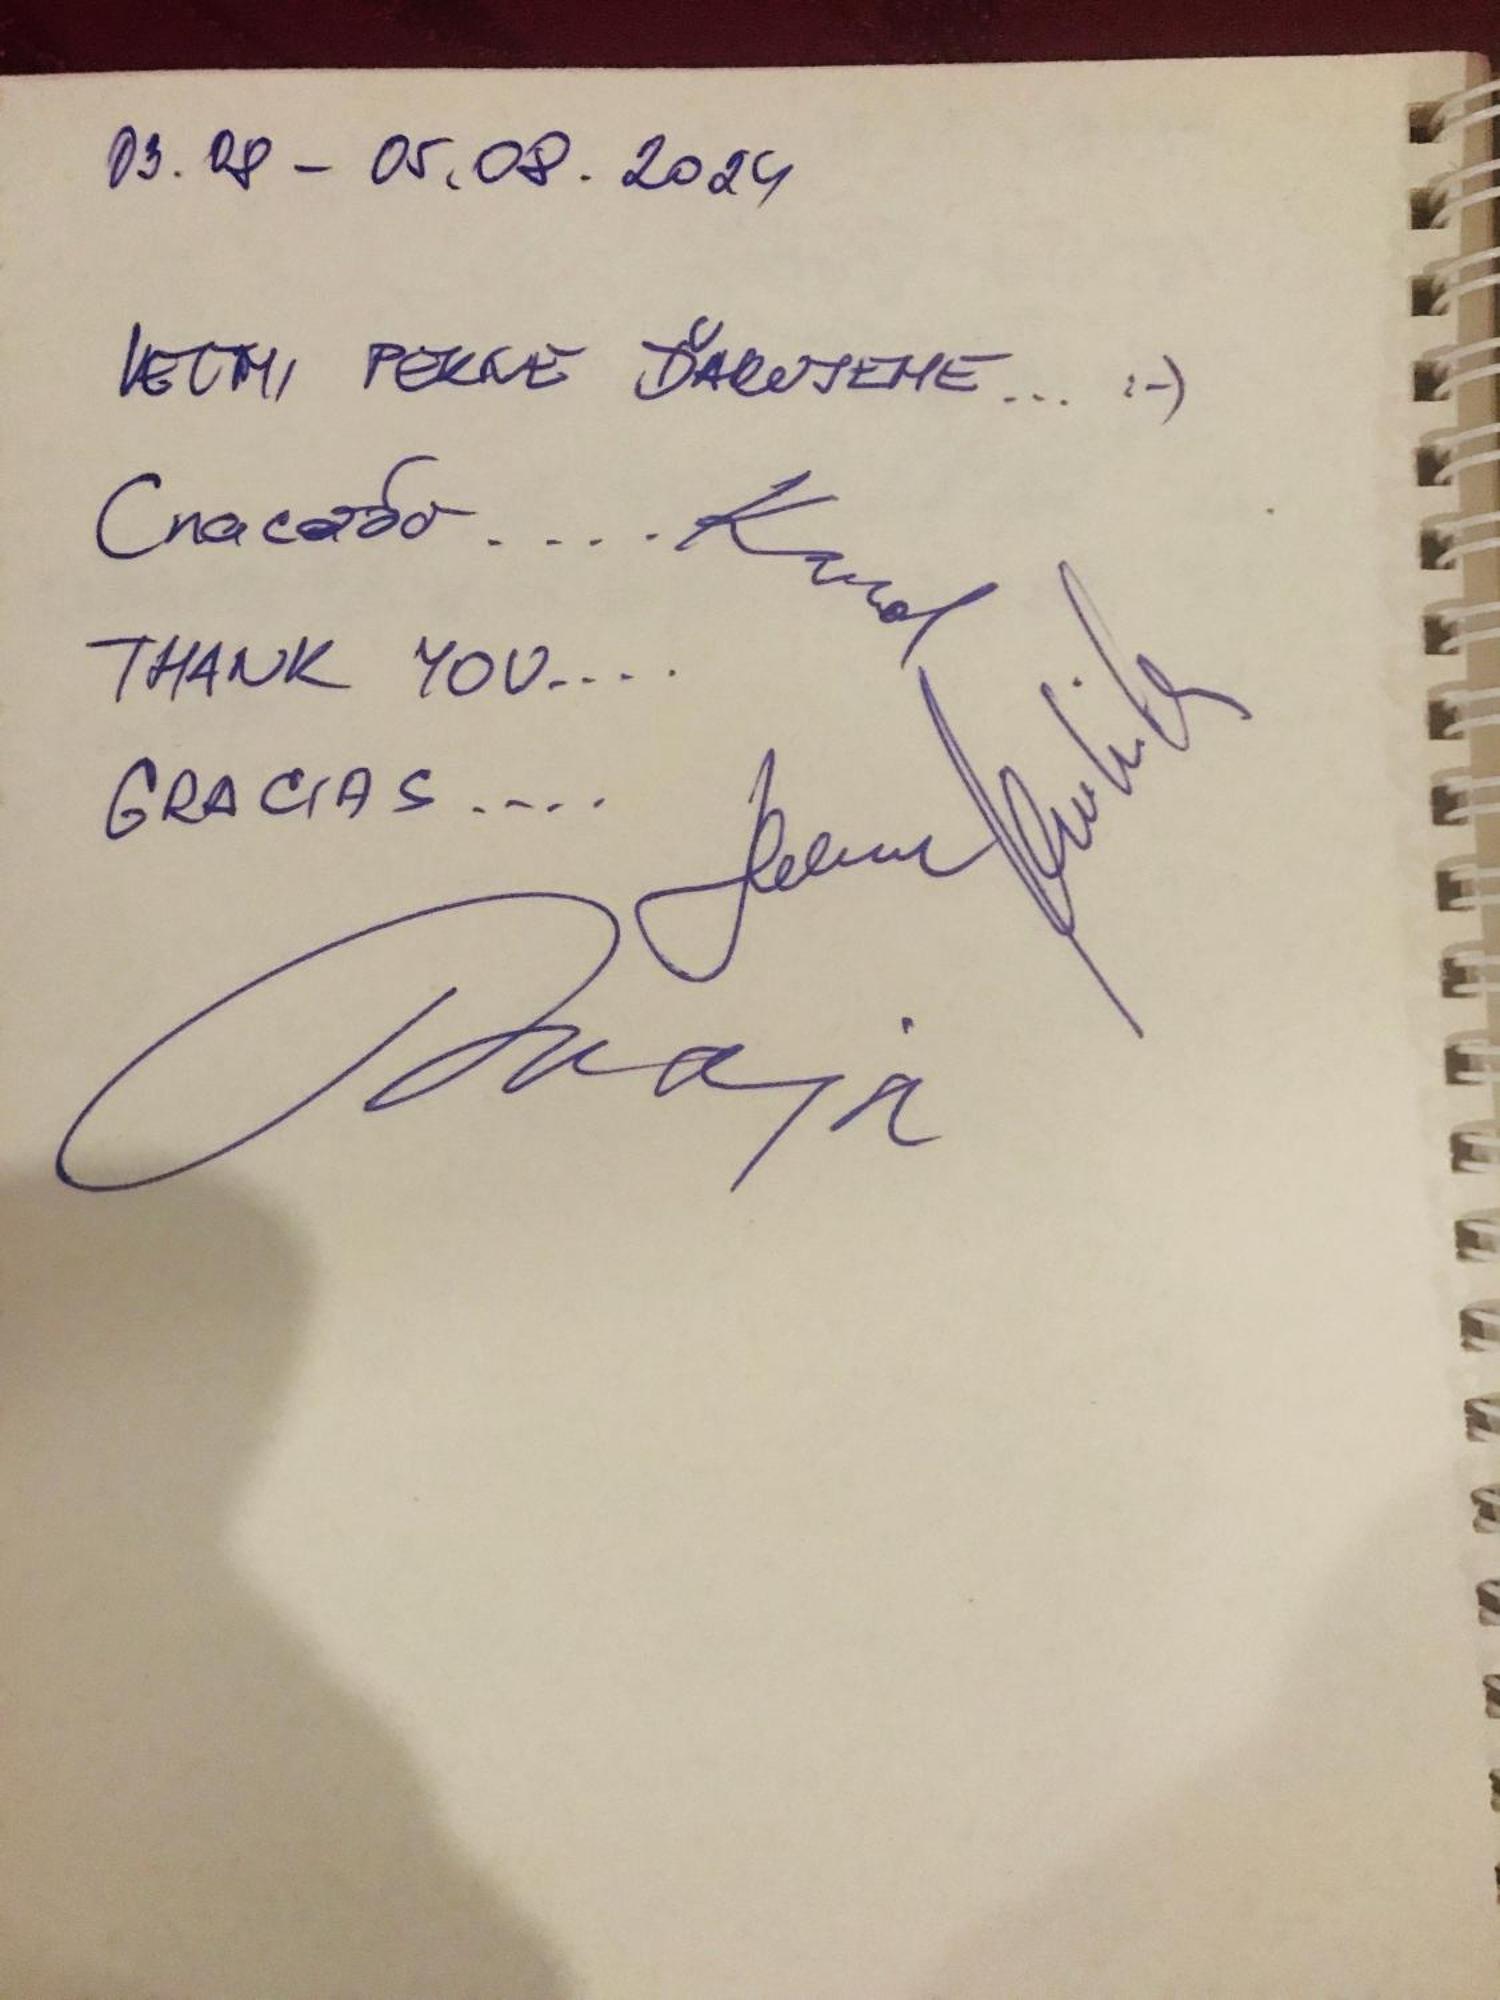 03.08 - 05.08.2024
VEĽMI PEKNE ĎAKUJEME... :-)
Спасибо.....
THANK YOU.....
GRACIAS.....